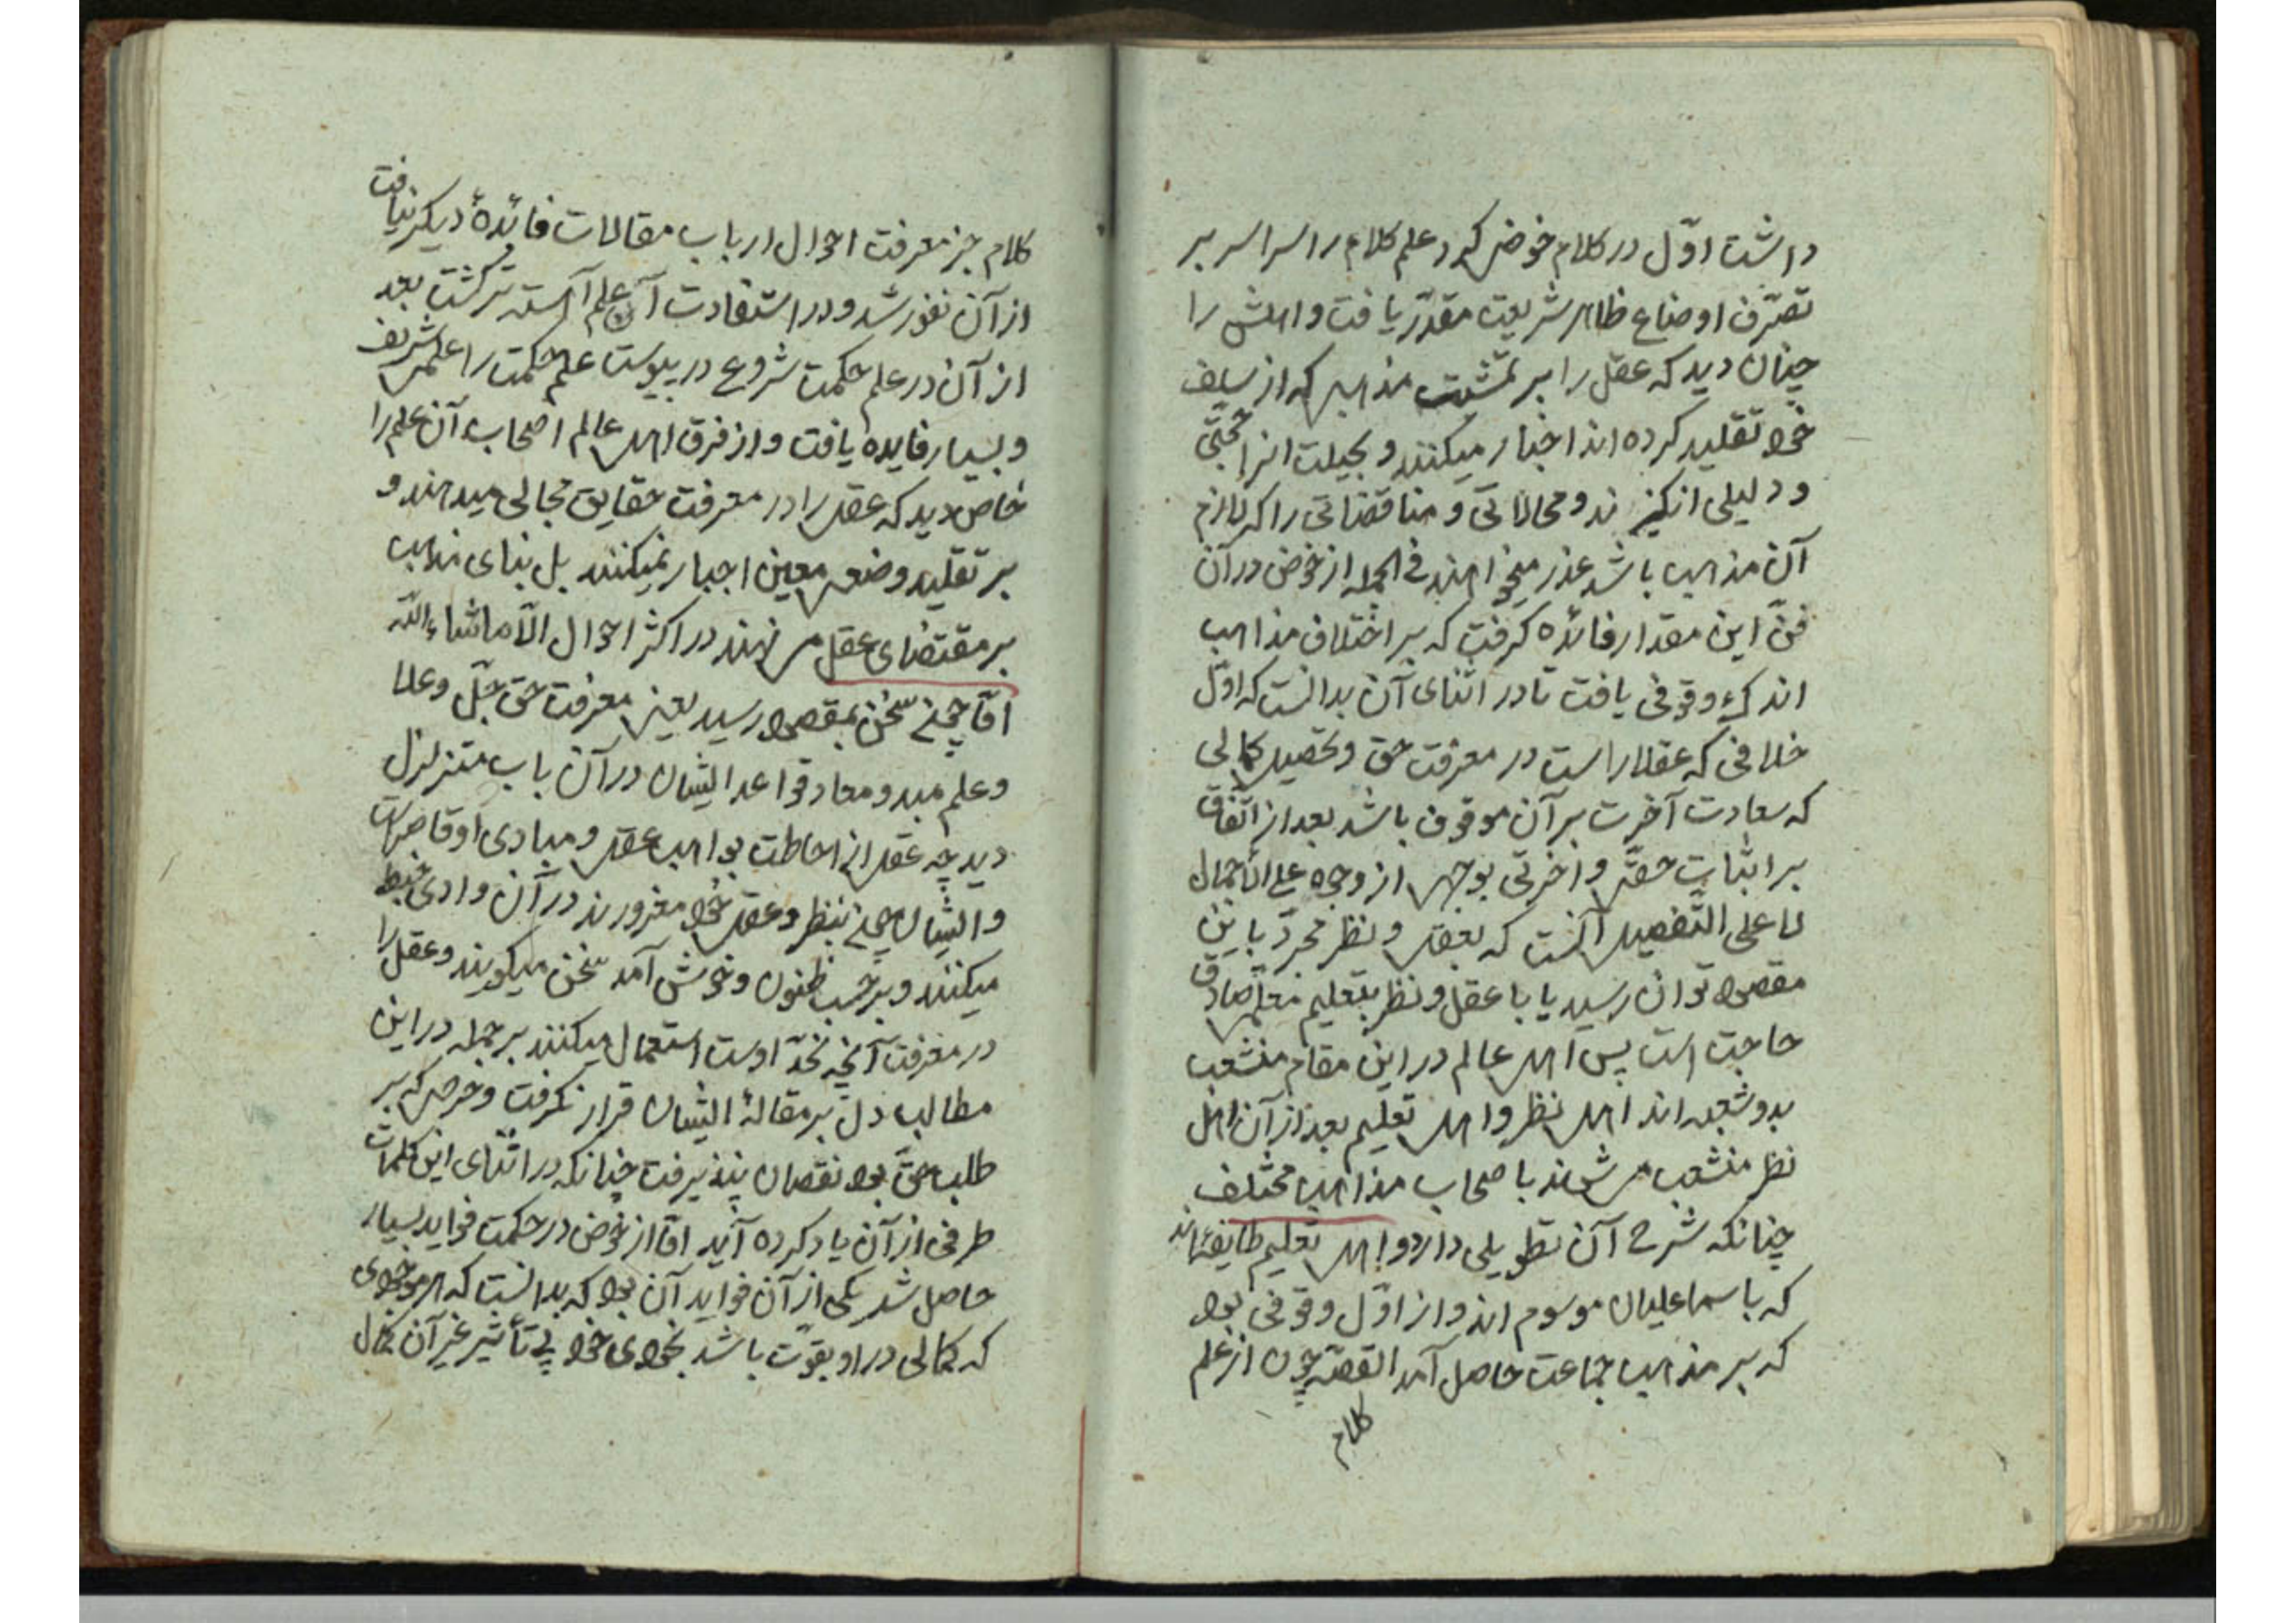 داشت اوّل در کلام خوض کرد علم کلام را سراسر بر
تصرّف اوضاع ظاهر شریعت مقدّر یافت و اهلش را
چنان دید که عقل را بر تمشیت مذهبی که از سلف
خود تقلید کرده اند اجبار میکنند و بحیلت انرا حجّتی
و دلیلی انگیزند و محالاتی و مناقضاتی را که لازم
آن مذهب باشد عذر میخواهند فی الجمله از خوض در آن
فنّ این مقدار فائده گرفت که بر اختلاف مذاهب
اندکی وقوفی یافت تا در اثنای آن بدانست که اوّل
خلافی که عقلا راست در معرفت حق و تحصیل کمالی
که سعادت آخرت بر آن موقوف باشد بعد از اتّفاق
بر اثبات حقّی و آخرتی بوجهی از وجوه علی الاجمال
لا علی التّفصیل آنست که بعقل و نظر مجرّد باین
مقصود توان رسید یا با عقل و نظر بتعلیم معلّمی صادق
حاجت است پس اهل عالم در این مقام منشعب
بدو شعبه اند اهل نظر و اهل تعلیم بعد از آن اهل
نظر منشعب می شوند باصحاب مذاهب مختلف
چنانکه شرح آن تطویلی دارد و اهل تعلیم طایفهٔ اند
که باسماعلیان موسوم اند و از اوّل وقوفی بود
که بر مذاهب جماعت حاصل آمد القصّه چون از علم
کلام
کلام جز معرفت احوال ارباب مقالات فائدهٔ دیگر نیافت
از آن نفور شد و در استفادت آن علم آهسته تر گشت بعد
از آن در علم حکمت شروع در پیوست علم حکمت را علمی شریف
و بسیار فایده یافت و از فرق اهل عالم اصحاب آن علم را
خاص دید که عقل را در معرفت حقایق مجالی میدهند و
بر تقلید وضعی معین اجبار نمیکنند بل بنای مذهب
بر مقتضای عقل می نهند در اکثر احوال الّا ماشاء الله
امّا چون سخن بمقصود رسید یعنی معرفت حق جلّ و علا
و علم مبدو و معاد قواعد ایشان در آن باب متزلزل
دید چه عقل از احاطت بواهب عقل و مبادی او قاصر است
و ایشان چون بنظر و عقل خود مغرورند در آن وادی خبط
میکنند و بر حسب ظنون و خوش آمد سخن میگویند و عقل را
در معرفت آنچه نحدّ اوست استعمال میکنند بر جمله در این
مطالب دل بر مقالهٔ ایشان قرار نگرفت و حرصی که بر
طلب حقّ بود نقصان نپذیرفت چنانکه در اثنای این کلمات
طرفی از آن یاد کرده آید امّا از خوض در حکمت فواید بسیار
حاصل شد یکی از آن فواید آن بود که بدانست که هر موجودی
که کمالی در او بقوّت باشد بخودی خود بی تأثیر غیر آن کمال